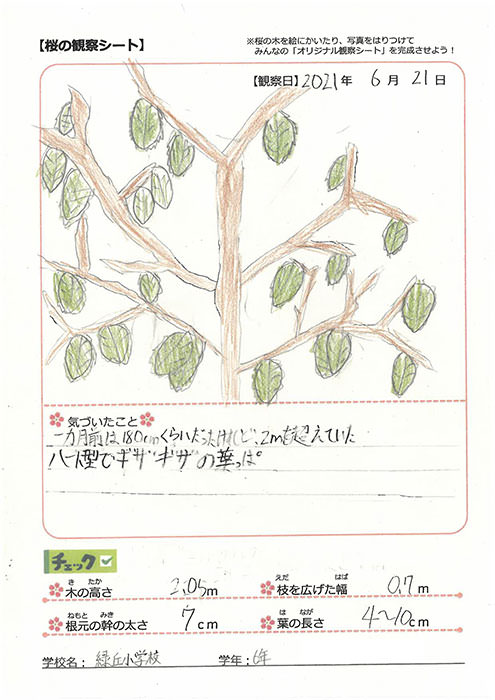 【桜の観察シート】
※桜の木を絵にかいたり、写真をはりつけて
みんなの「オリジナル観察シート」を完成させよう！
【観察日】2021年 6月 21日
気づいたこと
一カ月前は180cmくらいだったけれど、2mを超えていた
ハート型でギザギザの葉っぱ。
チェック
きたか
木の高さ 2.05m
えだ はば
枝を広げた幅 0.7m
ねもと みき
根元の幹の太さ 7cm
は なが
葉の長さ 4～10cm
学校名： 緑丘小学校 学年： 6年